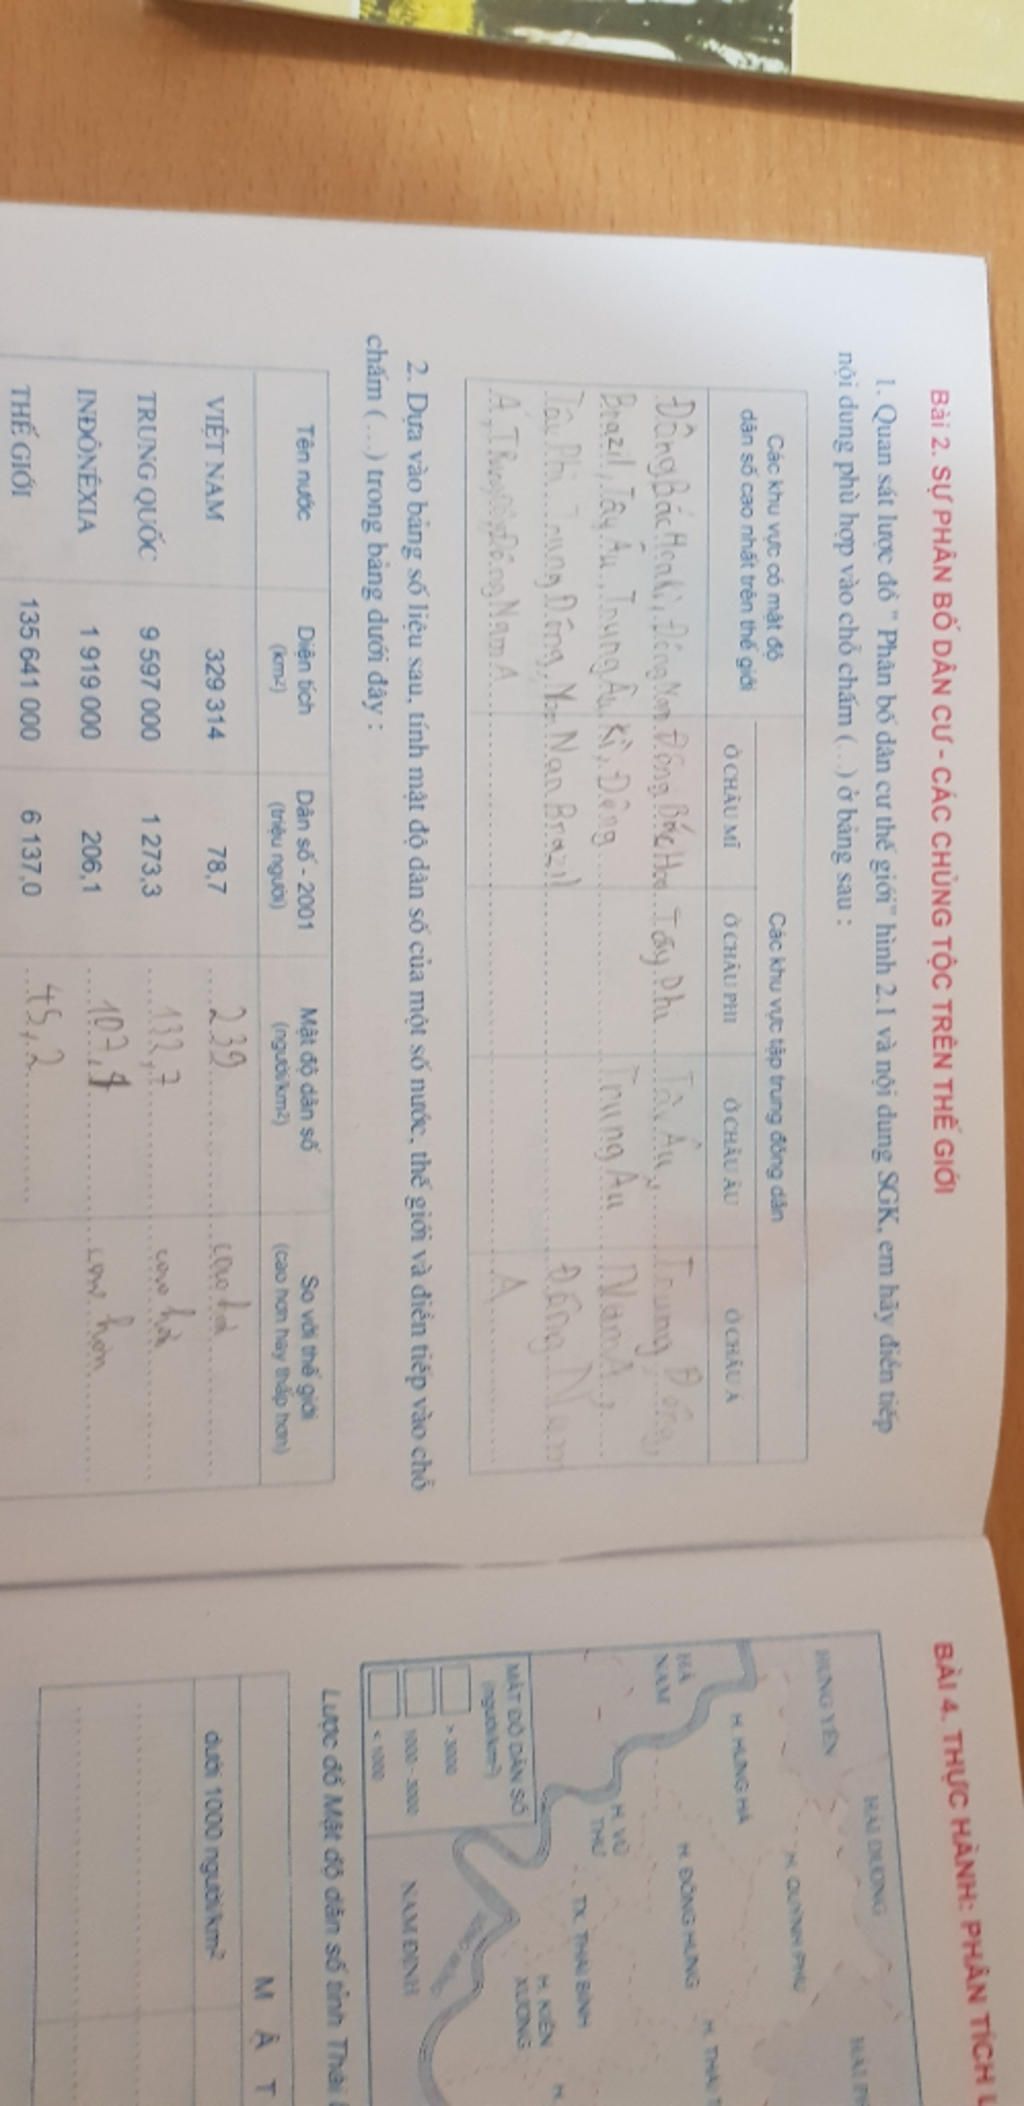 Bài 2. SỰ PHÂN BỐ DÂN CƯ - CÁC CHỦNG TỘC TRÊN THẾ GIỚI
1. Quan sát lược đồ " Phân bố dân cư thế giới" hình 2.1 và nội dung SGK, em hãy điền tiếp
nội dung phù hợp vào chỗ chấm (...) ở bảng sau :
Các khu vực có mật độ
dân số cao nhất trên thế giới
Các khu vực tập trung đông dân
Ở CHÂU MĨ Ở CHÂU PHI Ở CHÂU ÂU Ở CHÂU Á
Đông Bắc Hoa Kì, Đông Nam Đông Bắc Hoa Tây Phi Tây Âu, Trung Đông,
Brazil, Tây Âu, Trung Âu, Kì, Đông Trung Âu Nam Á,
Tây Phi, Trung Đông, Nam Nam Brazil Đông Nam
Á, Đông Nam Á Á
2. Dựa vào bảng số liệu sau, tính mật độ dân số của một số nước, thế giới và điền tiếp vào chỗ
chấm (...) trong bảng dưới đây :
Tên nước Diện tích (km²) Dân số - 2001 (triệu người) Mật độ dân số (người/km²) So với thế giới (cao hơn hay thấp hơn)
VIỆT NAM 329 314 78,7 239 cao hơn
TRUNG QUỐC 9 597 000 1 273,3 132,7 cao hơn
INĐÔNÊXIA 1 919 000 206,1 107,4 cao hơn
THẾ GIỚI 135 641 000 6 137,0 45,2
BÀI 4. THỰC HÀNH: PHÂN TÍCH L
HƯNG YÊN
HẢI DƯƠNG
HẢI PH
H. QUỲNH PHỤ
H. HƯNG HÀ
HÀ
NAM
H. ĐÔNG HƯNG
H. THÁI T
H. VŨ
THƯ
TX. THÁI BÌNH
H. KIẾN
XƯƠNG
H.
NAM ĐỊNH
MẬT ĐỘ DÂN SỐ
(người/km²)
> 3000
1000 - 3000
< 1000
Lược đồ Mật độ dân số tỉnh Thái
M Ậ T
dưới 1000 người/km²